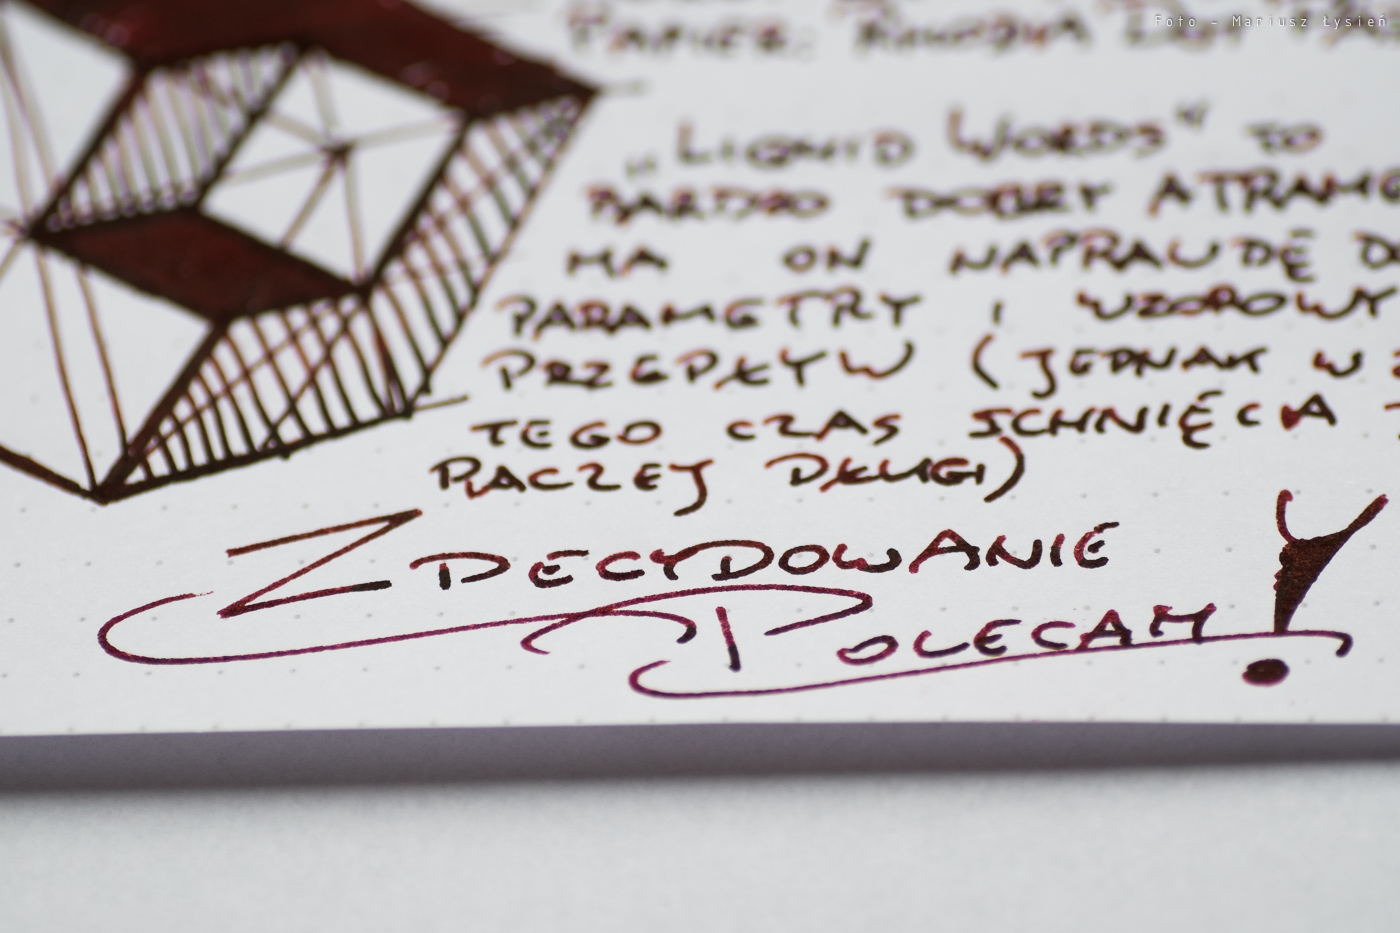 Foto - Mariusz Łysień
PAPIER: RHODIA DOT PA
„LIQUID WORDS" TO
BARDZO DOBRY ATRAME
MA ON NAPRAWDĘ D
PARAMETRY I WZOROWY
PRZEPŁYW (JEDNAK W Z
TEGO CZAS SCHNIĘCIA
RACZEJ DŁUGI)
ZDECYDOWANIE
POLECAM!